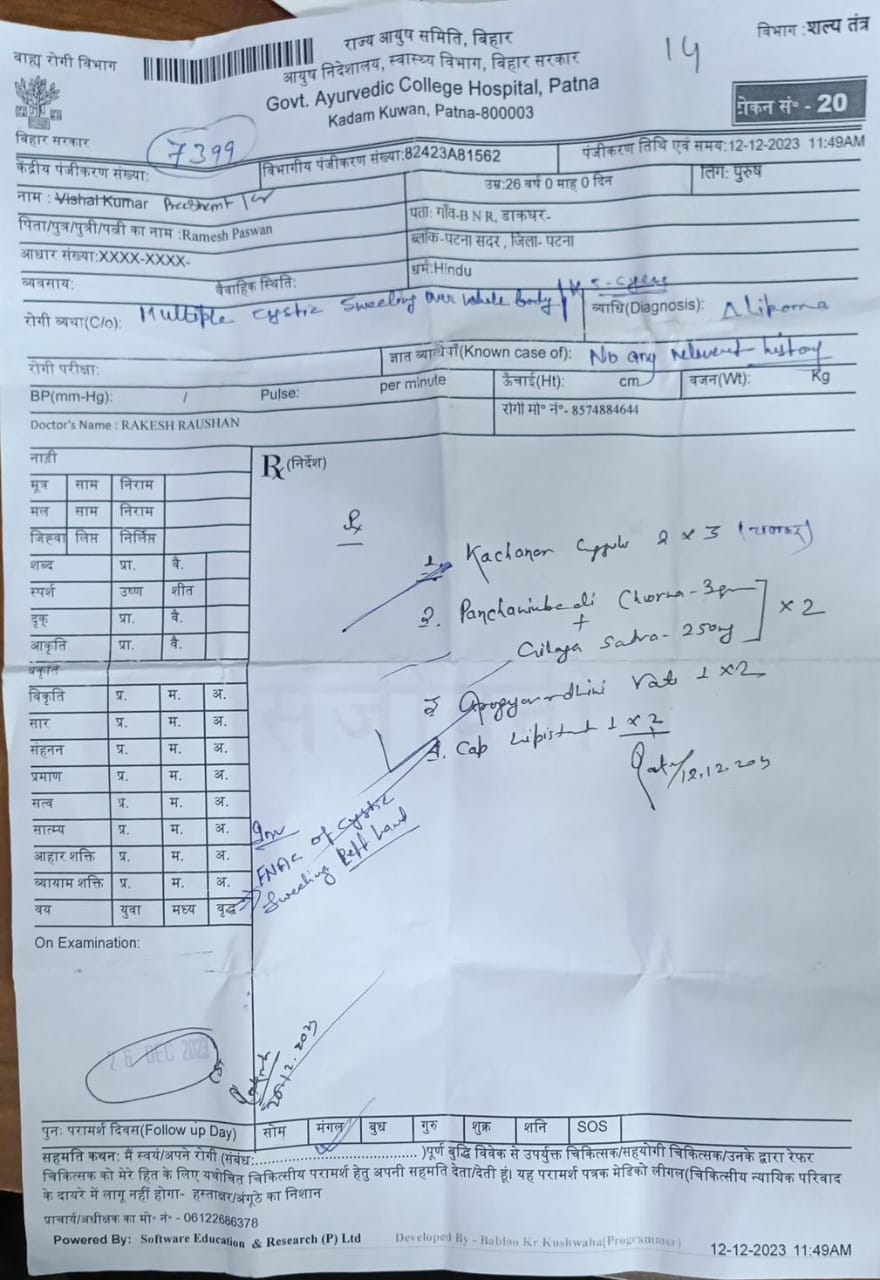 बाह्य रोगी विभाग
राज्य आयुष समिति, बिहार
आयुष निदेशालय, स्वास्थ्य विभाग, बिहार सरकार
Govt. Ayurvedic College Hospital, Patna
Kadam Kuwan, Patna-800003
14
विभाग :शल्य तंत्र
टोकन सं॰ - 20
बिहार सरकार
7399
केंद्रीय पंजीकरण संख्या:
विभागीय पंजीकरण संख्या:82423A81562
पंजीकरण तिथि एवं समय:12-12-2023 11:49AM
नाम : Vishal Kumar
उम्र:26 वर्ष 0 माह 0 दिन
लिंग: पुरुष
पिता/पुत्र/पुत्री/पत्नी का नाम :Ramesh Paswan
पता: गाँव-B N R, डाकघर-
आधार संख्या:XXXX-XXXX-
ब्लॉक-पटना सदर, जिला- पटना
व्यवसाय:
वैवाहिक स्थिति:
धर्म:Hindu
रोगी व्यथा(C/o): Multiple cystic sweeling over whole body
व्याधि(Diagnosis): Δ Lipoma
रोगी परीक्षा:
ज्ञात व्याधियाँ(Known case of): No any relevent history
BP(mm-Hg): /
Pulse:
per minute
ऊँचाई(Ht): cm
वजन(Wt): Kg
Doctor's Name : RAKESH RAUSHAN
रोगी मो॰ नं॰- 8574884644
नाड़ी
मूत्र साम निराम
मल साम निराम
जिह्वा लिप्त निर्लिप्त
शब्द प्रा. वै.
स्पर्श उष्ण शीत
दृक् प्रा. वै.
आकृति प्रा. वै.
प्रकृति
विकृति प्र. म. अ.
सार प्र. म. अ.
संहनन प्र. म. अ.
प्रमाण प्र. म. अ.
सत्व प्र. म. अ.
सात्म्य प्र. म. अ.
आहार शक्ति प्र. म. अ.
व्यायाम शक्ति प्र. म. अ.
वय युवा मध्य वृद्ध
On Examination:
Rx (निर्देश)
Rx
1. Kachanar Guggulu 2 x 3
2. Panchanimbadi Churna - 3gm
+
Giloya Satva - 250mg
x 2
3 Arogyavardhini Vati 1 x 2
4. Cap Lipistat 1 x 2
12.12.203
Inv
FNAC of cystic
sweeling Left hand
26 DEC 2023
पुनः परामर्श दिवस(Follow up Day) सोम मंगल बुध गुरु शुक्र शनि SOS
सहमति कथन: मैं स्वयं/अपने रोगी (संबंध:.......................................)पूर्ण बुद्धि विवेक से उपर्युक्त चिकित्सक/सहयोगी चिकित्सक/उनके द्वारा रेफर
चिकित्सक को मेरे हित के लिए यथोचित चिकित्सीय परामर्श हेतु अपनी सहमति देता/देती हूं। यह परामर्श पत्रक मेडिको लीगल(चिकित्सीय न्यायिक परिवाद
के दायरे में लागू नहीं होगा- हस्ताक्षर/अंगूठे का निशान
प्राचार्य/अधीक्षक का मो॰ नं॰ - 06122686378
Powered By: Software Education & Research (P) Ltd
Developed By - Babloo Kr Kushwaha(Programmer)
12-12-2023 11:49AM